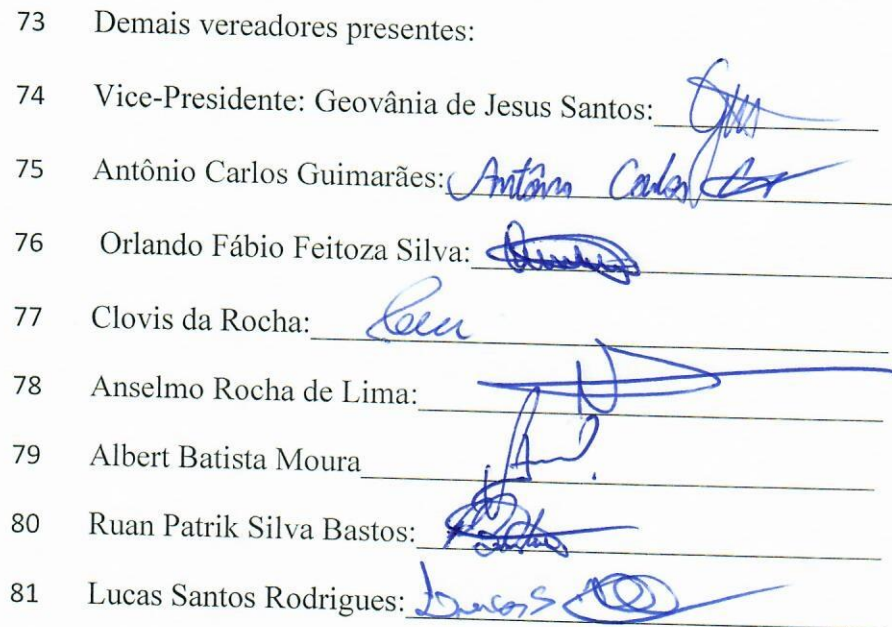 73 Demais vereadores presentes:
74 Vice-Presidente: Geovânia de Jesus Santos:
75 Antônio Carlos Guimarães: Antônio Carlos
76 Orlando Fábio Feitoza Silva:
77 Clovis da Rocha:
78 Anselmo Rocha de Lima:
79 Albert Batista Moura
80 Ruan Patrik Silva Bastos:
81 Lucas Santos Rodrigues: Lucas S